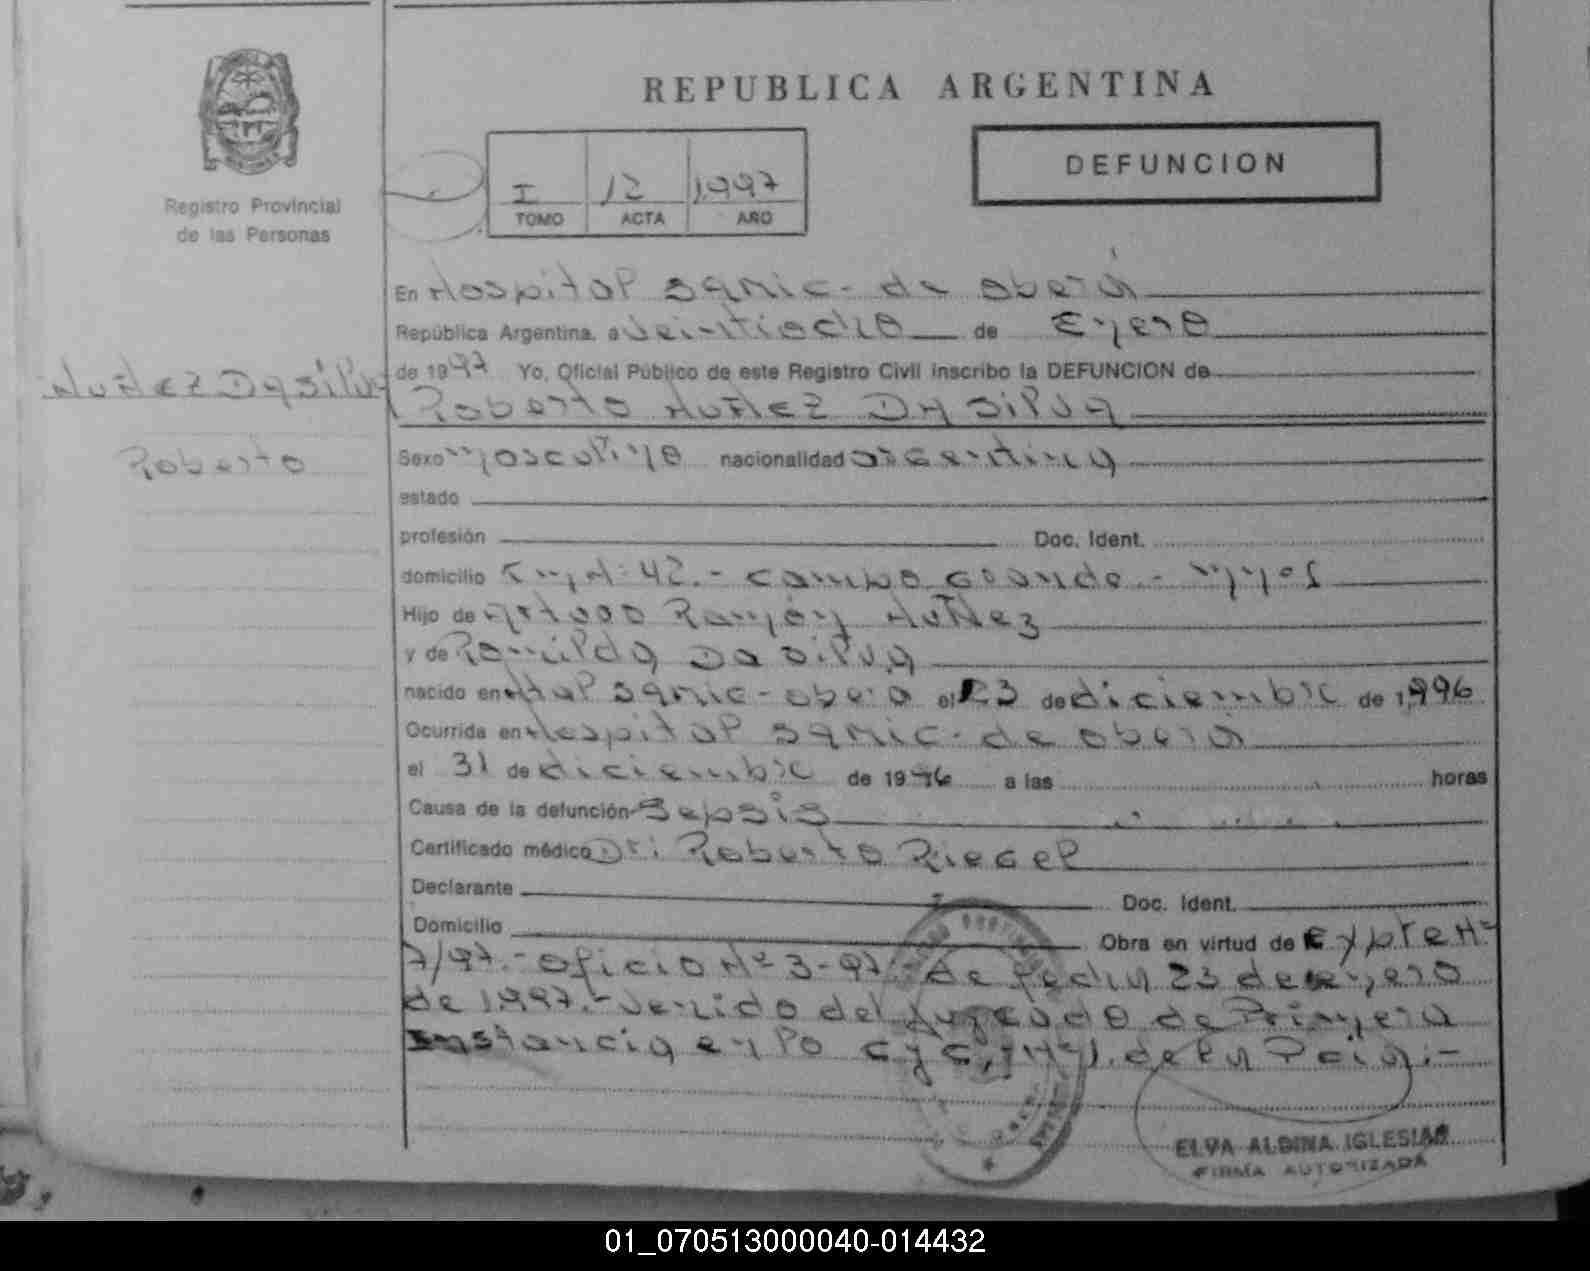 REPUBLICA ARGENTINA
Registro Provincial
de las Personas
I 12 1.997
TOMO ACTA AÑO
DEFUNCION
En Hospital Samic - de oberá
República Argentina, a veintiocho de Enero
de 1997 Yo, Oficial Público de este Registro Civil inscribo la DEFUNCION de
Nuñez Dasilva
Roberto
Roberto Nuñez Da Silva
Sexo masculino nacionalidad argentina
estado
profesión Doc. Ident.
domicilio Km. 42.- campo Grande -
Hijo de Arturo Ramón Nuñez
y de Romilda Da Silva
nacido en Htal Samic - obera el 23 de diciembre de 1.996
Ocurrida en Hospital Samic - de oberá
el 31 de diciembre de 1996 a las horas
Causa de la defunción Sepsis
Certificado médico Dr: Roberto Riegel
Declarante Doc. Ident.
Domicilio Obra en virtud de Expte Nº
7/97.- oficio Nº 3-97. de fecha 23 de enero
de 1.997.- venido del Juzgado de Primera
Instancia en lo C y C, Nº 1. de la Pcia:-
ELVA ALBINA IGLESIAS
FIRMA AUTORIZADA
01_070513000040-014432